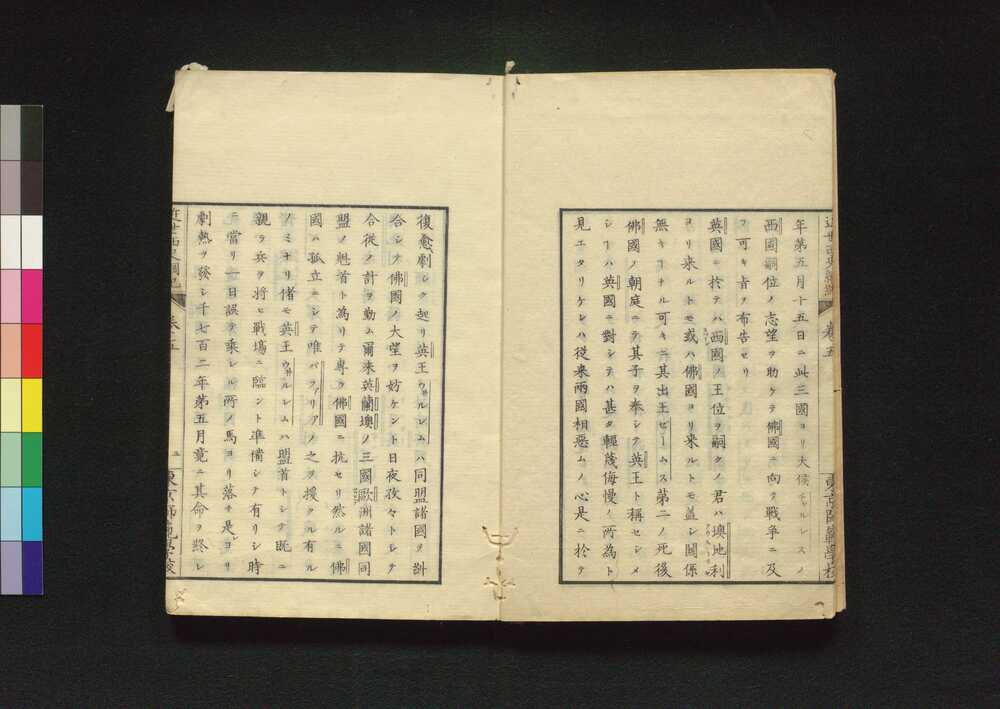 年第五月十五日ニ此三國ヨリ大候チャルレスノ
西國嗣位ノ志望ヲ助ケテ佛國ニ向テ戦争ニ及
フ可キ旨ヲ布告セリ
英國ニ於テハ西國ノ王位ヲ嗣クノ君ハ墺地利
ヨリ来ルトモ或ハ佛國ヨリ来ルトモ盖シ關係
無キヿナル可キニ其出王ゼームス第二ノ死後
佛國ノ朝庭ニテ其子ヲ奉シテ英王ト稱セシメ
シヿハ英國ニ對シテハ甚タ輕蔑侮慢ノ所為ト
見エタリケレハ従来兩國相惡ムノ心是ニ於テ
近世西史綱紀
卷五
東京師範學校
復愈劇シク起リ英王ウ井ルレムハ同盟諸國ヲ斜
合シテ佛國ノ大望ヲ妨ケント日夜孜々トシテ
合従ノ計ヲ勤ム爾来英蘭墺ノ三國歐洲諸國同
盟ノ魁首ト為リテ專ラ佛國ニ抗セリ然ルニ佛
國ハ孤立ニシテ唯バファリアノ之ヲ援クル有ル
ノミナリ偖モ英王ウ井ルレムハ盟首トシテ既ニ
親ラ兵ヲ将ヒ戰塲ニ臨ント準備シテ有リシ時
ニ當リ一日誤テ乘レル所ノ馬ヨリ落チ是レヨリ
劇熱ヲ發シ千七百二年第五月竟ニ其命ヲ終レ
近世西史綱紀
卷五
二
東京師範學校